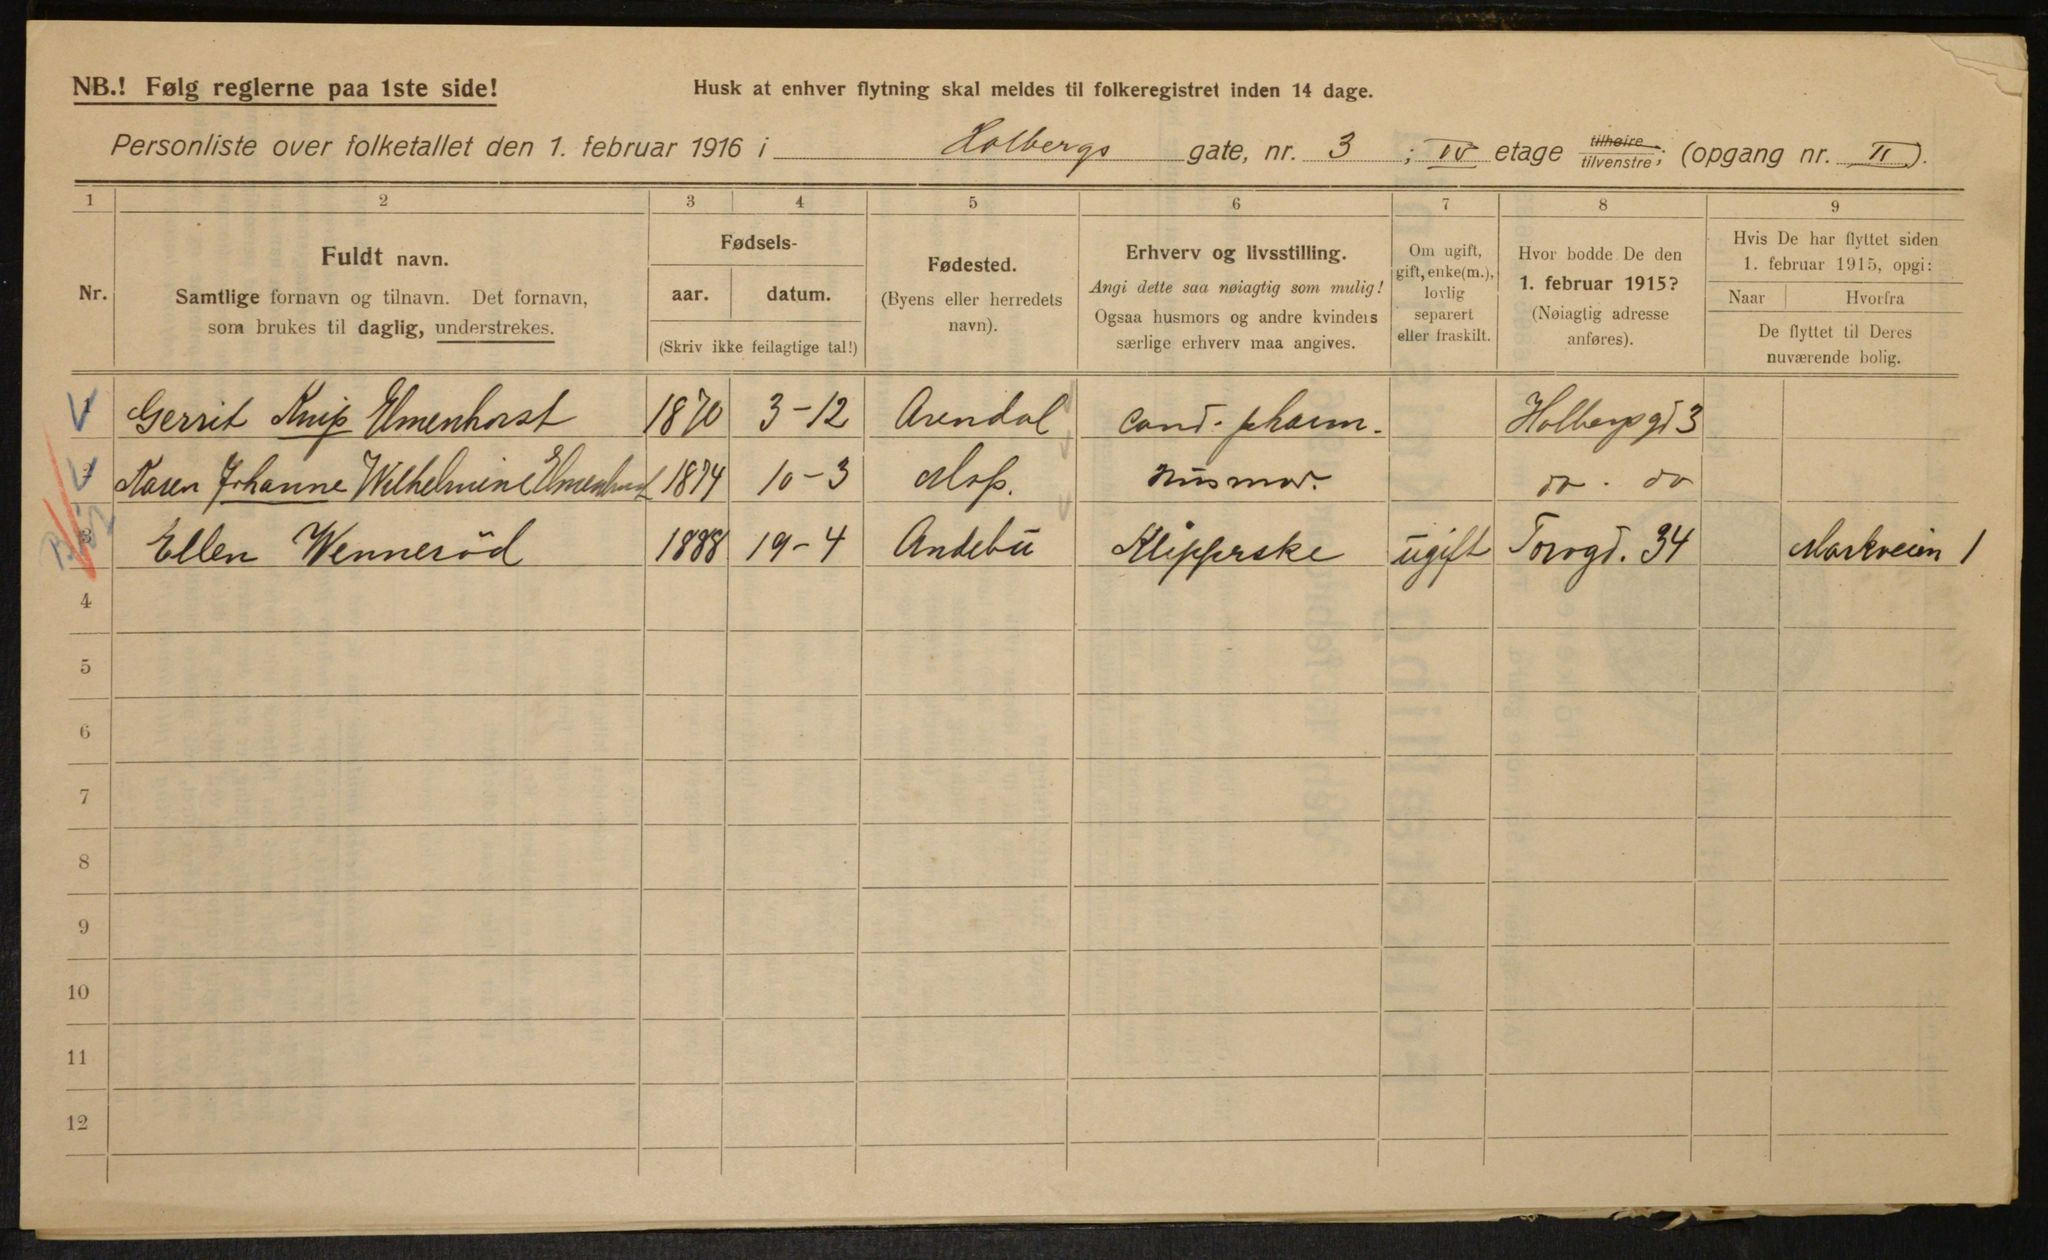 NB.! Følg reglerne paa 1ste side!
Husk at enhver flytning skal meldes til folkeregistret inden 14 dage.
Personliste over folketallet den 1. februar 1916 i Holbergs gate, nr. 3 ; IV etage tilhøire tilvenstre; (opgang nr. II).
1 2 3 4 5 6 7 8 9
Nr.
Fuldt navn.
Samtlige fornavn og tilnavn. Det fornavn,
som brukes til daglig, understrekes.
Fødsels-
aar. datum.
(Skriv ikke feilagtige tal!)
Fødested.
(Byens eller herredets
navn).
Erhverv og livsstilling.
Angi dette saa nøiagtig som mulig!
Ogsaa husmors og andre kvinders
særlige erhverv maa angives.
Om ugift,
gift, enke(m.),
lovlig
separert
eller fraskilt.
Hvor bodde De den
1. februar 1915?
(Nøiagtig adresse
anføres).
Hvis De har flyttet siden
1. februar 1915, opgi:
Naar Hvorfra
De flyttet til Deres
nuværende bolig.
1 Gerrit Knip Elmenhorst 1870 3-12 Arendal cand. pharm. Holbergsgd 3
2 Karen Johanne Wilhelmine Elmenhorst 1874 10-3 husmor. do. do
3 Ellen Wennerød 1888 19-4 Andebu Klipperske ugift Torvgd. 34 Markveien 1
4
5
6
7
8
9
10
11
12